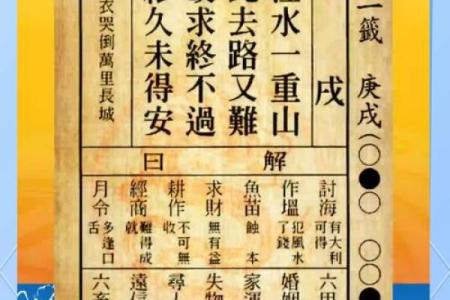 一籤 庚戌(○●○ ○○●
戌
江水一重山
此去路又難
求終不過
終久未得安
衣哭倒萬里長城
解曰
討海 有大利可得
作塭 犯風水了錢
魚苗 蝕本
求財 無有益
耕作 不可無收
經商 難得成就
月令 多逢口舌
六甲
婚姻
家運
失物
尋人
遠信
六畜